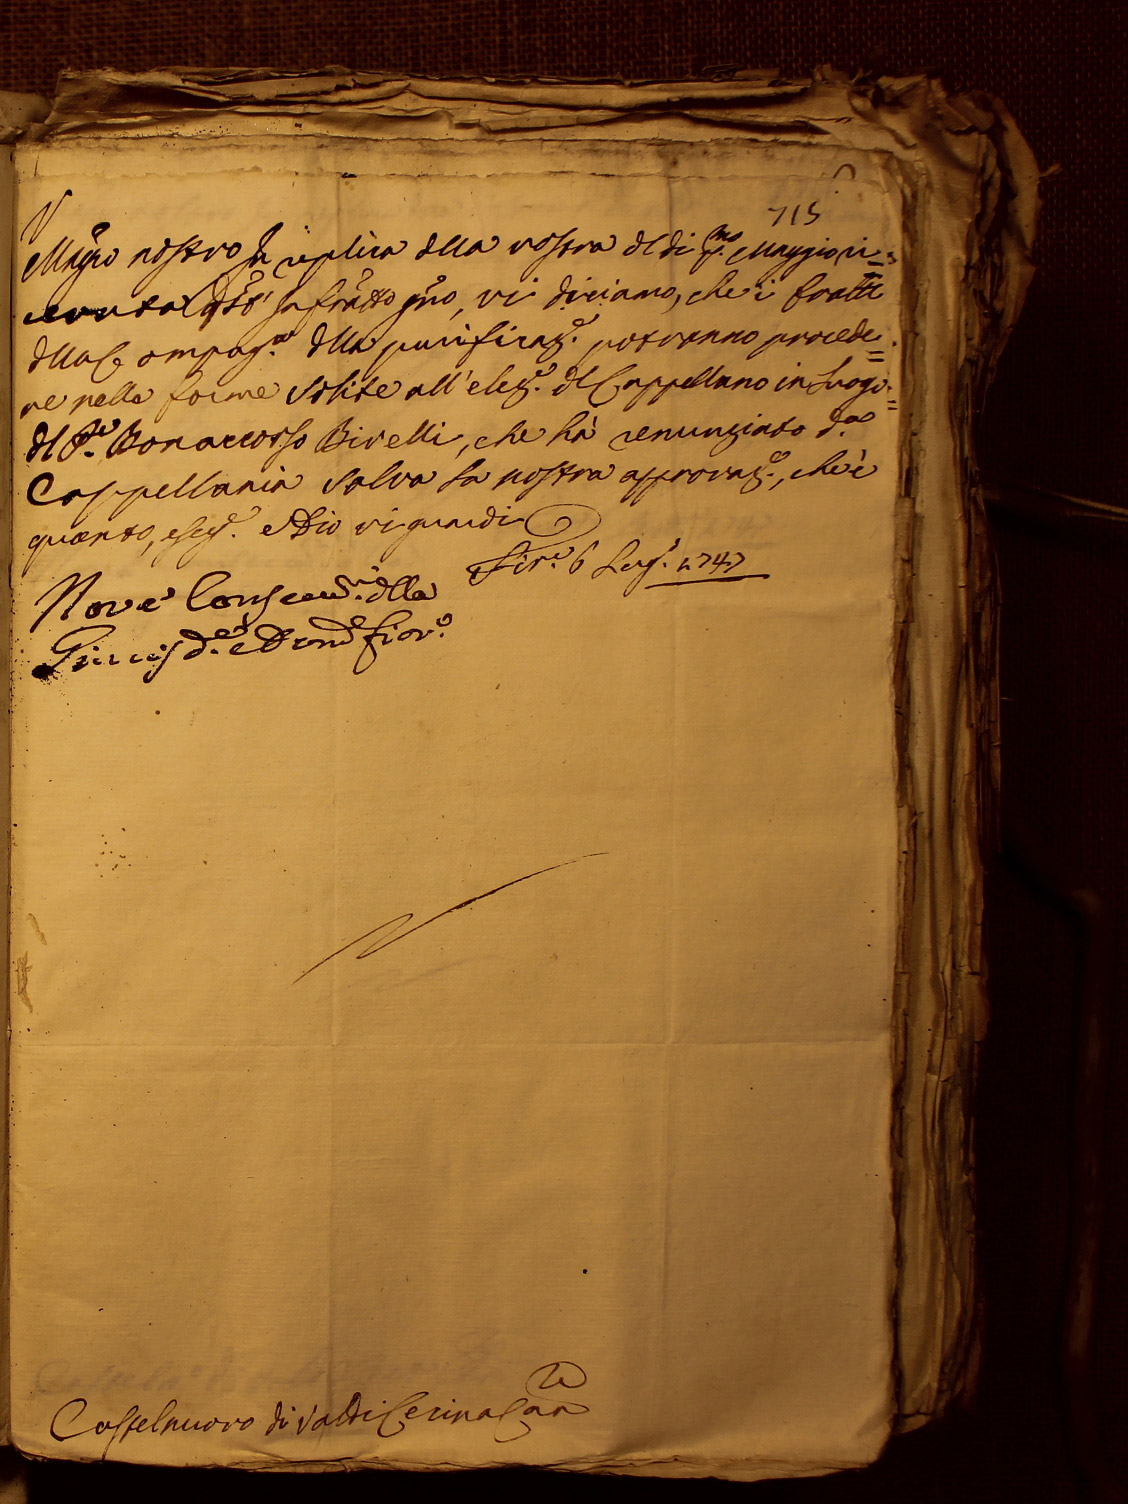 715
Mag.co nostro In replica della vostra del di p.mo Maggio ri=
cevuta infratto g.no, vi diciamo, che i fratti
della Compag.a della purificaz.e potranno procede=
re nelle forme solite all'elez.e del Cappellano in luogo=
del P.e Bonaccorso Birelli, che hà renunziato d.a
Cappellania salva la nostra approvaz.e, che è
quanto, e Dio vi guardi
Fir.e 6 Lug.o 1747
Nove Conservad.ri della
Giurisd.e e Dom.o Fior.o
Castelnuovo di Val di Cecina Can.re